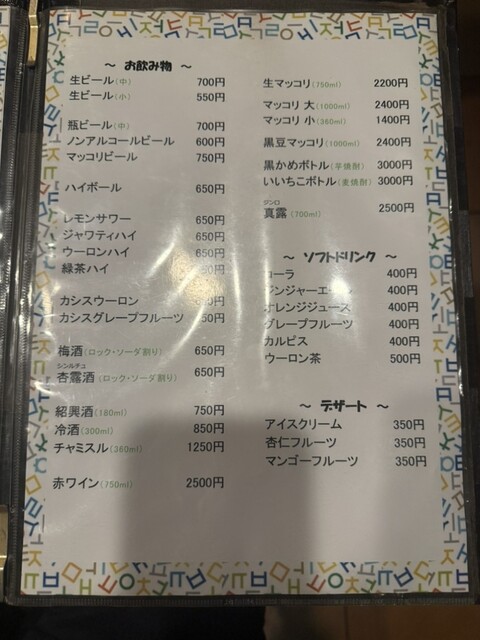 ～ お飲み物 ～
生ビール(中) 700円
生ビール(小) 550円
瓶ビール(中) 700円
ノンアルコールビール 600円
マッコリビール 750円
ハイボール 650円
レモンサワー 650円
ジャワティハイ 650円
ウーロンハイ 650円
緑茶ハイ
カシスウーロン
カシスグレープフルーツ
梅酒(ロック・ソーダ割り) 650円
シンルチュ
杏露酒(ロック・ソーダ割り) 650円
紹興酒(180ml) 750円
冷酒(300ml) 850円
チャミスル(360ml) 1250円
赤ワイン(750ml) 2500円
生マッコリ(750ml) 2200円
マッコリ 大(1000ml) 2400円
マッコリ 小(360ml) 1400円
黒豆マッコリ(1000ml) 2400円
黒かめボトル(芋焼酎) 3000円
いいちこボトル(麦焼酎) 3000円
ジンロ
真露(700ml) 2500円
～ ソフトドリンク ～
コーラ 400円
ジンジャーエール 400円
オレンジジュース 400円
グレープフルーツ 400円
カルピス 400円
ウーロン茶 500円
～ デザート ～
アイスクリーム 350円
杏仁フルーツ 350円
マンゴーフルーツ 350円